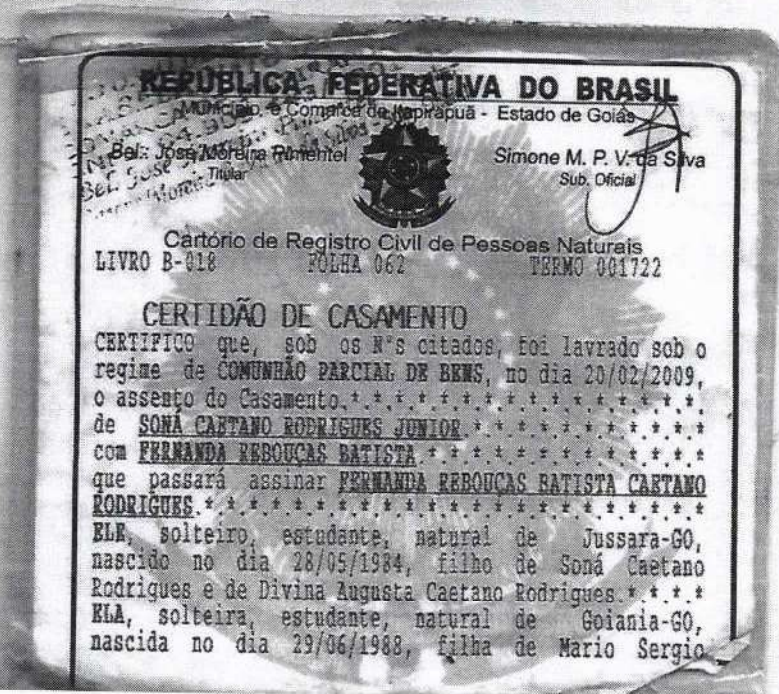 REPÚBLICA FEDERATIVA DO BRASIL
Município e Comarca de Itapirapuã - Estado de Goiás
Bel. José Moreira Pimentel
Titular
Simone M. P. V. da Silva
Sub. Oficial
Cartório de Registro Civil de Pessoas Naturais
LIVRO B-018 FOLHA 062 TERMO 001722
CERTIDÃO DE CASAMENTO
CERTIFICO que, sob os Nºs citados, foi lavrado sob o
regime de COMUNHÃO PARCIAL DE BENS, no dia 20/02/2009,
o assento do Casamento.*.*.*.*.*.*.*.*.*.*.*.*.*.*.*.*.
de SONÁ CAETANO RODRIGUES JUNIOR.*.*.*.*.*.*.*.*.*.*.*
com FERNANDA REBOUÇAS BATISTA.*.*.*.*.*.*.*.*.*.*.*.*
que passará assinar FERNANDA REBOUÇAS BATISTA CAETANO
RODRIGUES.*.*.*.*.*.*.*.*.*.*.*.*.*.*.*.*.*.*.*.*.*.*
ELE, solteiro, estudante, natural de Jussara-GO,
nascido no dia 28/05/1984, filho de Soná Caetano
Rodrigues e de Divina Augusta Caetano Rodrigues.*.*.*.*
ELA, solteira, estudante, natural de Goiania-GO,
nascida no dia 29/06/1988, filha de Mario Sergio